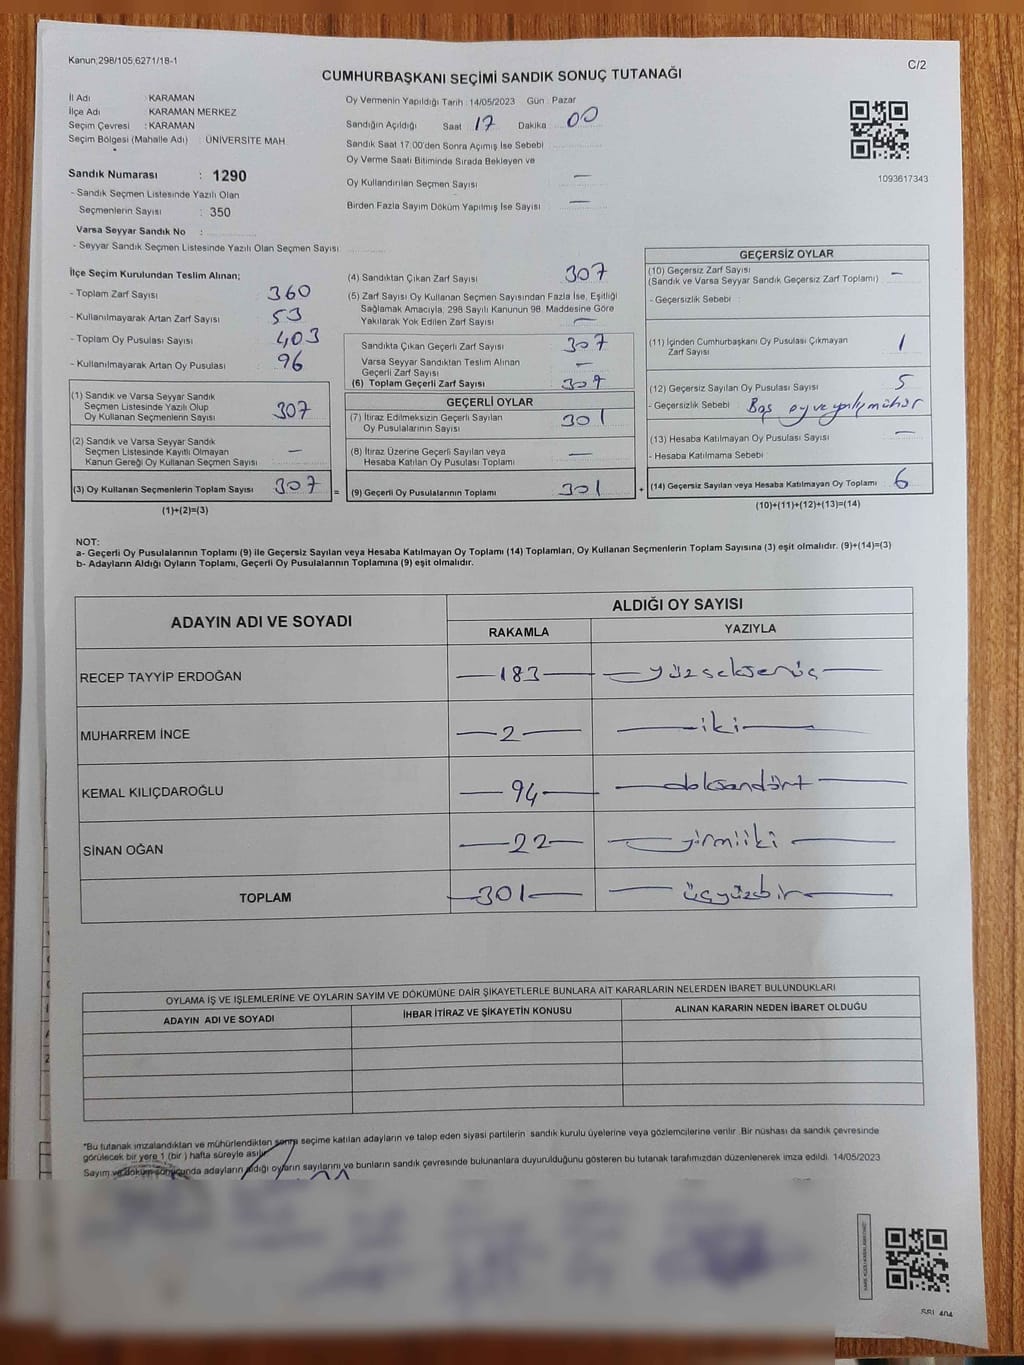 Kanun;298/105,6271/18-1
C/2
CUMHURBAŞKANI SEÇİMİ SANDIK SONUÇ TUTANAĞI
İl Adı : KARAMAN
İlçe Adı : KARAMAN MERKEZ
Seçim Çevresi : KARAMAN
Seçim Bölgesi (Mahalle Adı) : ÜNİVERSİTE MAH.
Sandık Numarası : 1290
- Sandık Seçmen Listesinde Yazılı Olan
Seçmenlerin Sayısı : 350
Varsa Seyyar Sandık No :
- Seyyar Sandık Seçmen Listesinde Yazılı Olan Seçmen Sayısı:
Oy Vermenin Yapıldığı Tarih : 14/05/2023 Gün : Pazar
Sandığın Açıldığı Saat 17 Dakika 00
Sandık Saat 17.00'den Sonra Açımış İse Sebebi :
Oy Verme Saati Bitiminde Sırada Bekleyen ve
Oy Kullandırılan Seçmen Sayısı : —
Birden Fazla Sayım Döküm Yapılmış İse Sayısı : —
1093617343
İlçe Seçim Kurulundan Teslim Alınan;
- Toplam Zarf Sayısı : 360
- Kullanılmayarak Artan Zarf Sayısı : 53
- Toplam Oy Pusulası Sayısı : 403
- Kullanılmayarak Artan Oy Pusulası : 96
(1) Sandık ve Varsa Seyyar Sandık
Seçmen Listesinde Yazılı Olup
Oy Kullanan Seçmenlerin Sayısı : 307
(2) Sandık ve Varsa Seyyar Sandık
Seçmen Listesinde Kayıtlı Olmayan
Kanun Gereği Oy Kullanan Seçmen Sayısı : —
(3) Oy Kullanan Seçmenlerin Toplam Sayısı : 307 =
(1)+(2)=(3)
(4) Sandıktan Çıkan Zarf Sayısı : 307
(5) Zarf Sayısı Oy Kullanan Seçmen Sayısından Fazla İse, Eşitliği
Sağlamak Amacıyla, 298 Sayılı Kanunun 98. Maddesine Göre
Yakılarak Yok Edilen Zarf Sayısı : —
Sandıkta Çıkan Geçerli Zarf Sayısı : 307
Varsa Seyyar Sandıktan Teslim Alınan
Geçerli Zarf Sayısı : —
(6) Toplam Geçerli Zarf Sayısı : 307
GEÇERLİ OYLAR
(7) İtiraz Edilmeksizin Geçerli Sayılan
Oy Pusulalarının Sayısı : 301
(8) İtiraz Üzerine Geçerli Sayılan veya
Hesaba Katılan Oy Pusulası Toplamı : —
(9) Geçerli Oy Pusulalarının Toplamı : 301 +
GEÇERSİZ OYLAR
(10) Geçersiz Zarf Sayısı : —
(Sandık ve Varsa Seyyar Sandık Geçersiz Zarf Toplamı)
- Geçersizlik Sebebi :
(11) İçinden Cumhurbaşkanı Oy Pusulası Çıkmayan
Zarf Sayısı : 1
(12) Geçersiz Sayılan Oy Pusulası Sayısı : 5
- Geçersizlik Sebebi : Boş oy ve yanlış mühür
(13) Hesaba Katılmayan Oy Pusulası Sayısı : —
- Hesaba Katılmama Sebebi :
(14) Geçersiz Sayılan veya Hesaba Katılmayan Oy Toplamı : 6
(10)+(11)+(12)+(13)=(14)
NOT:
a- Geçerli Oy Pusulalarının Toplamı (9) ile Geçersiz Sayılan veya Hesaba Katılmayan Oy Toplamı (14) Toplamları, Oy Kullanan Seçmenlerin Toplam Sayısına (3) eşit olmalıdır. (9)+(14)=(3)
b- Adayların Aldığı Oyların Toplamı, Geçerli Oy Pusulalarının Toplamına (9) eşit olmalıdır.
ADAYIN ADI VE SOYADI
ALDIĞI OY SAYISI
RAKAMLA YAZIYLA
RECEP TAYYİP ERDOĞAN —183— —yüzseksenüç—
MUHARREM İNCE —2— —iki—
KEMAL KILIÇDAROĞLU —94— —doksandört—
SİNAN OĞAN —22— —yirmiiki—
TOPLAM —301— —üçyüzbir—
OYLAMA İŞ VE İŞLEMLERİNE VE OYLARIN SAYIM VE DÖKÜMÜNE DAİR ŞİKAYETLERLE BUNLARA AİT KARARLARIN NELERDEN İBARET BULUNDUKLARI
ADAYIN ADI VE SOYADI İHBAR İTİRAZ VE ŞİKAYETİN KONUSU ALINAN KARARIN NEDEN İBARET OLDUĞU
*Bu tutanak imzalandıktan ve mühürlendikten sonra seçime katılan adayların ve talep eden siyasi partilerin sandık kurulu üyelerine veya gözlemcilerine verilir. Bir nüshası da sandık çevresinde
görülecek bir yere 1 (bir ) hafta süreyle asılır.
Sayım ve döküm sonucunda adayların aldığı oyların sayılarını ve bunların sandık çevresinde bulunanlara duyurulduğunu gösteren bu tutanak tarafımızdan düzenlenerek imza edildi. 14/05/2023